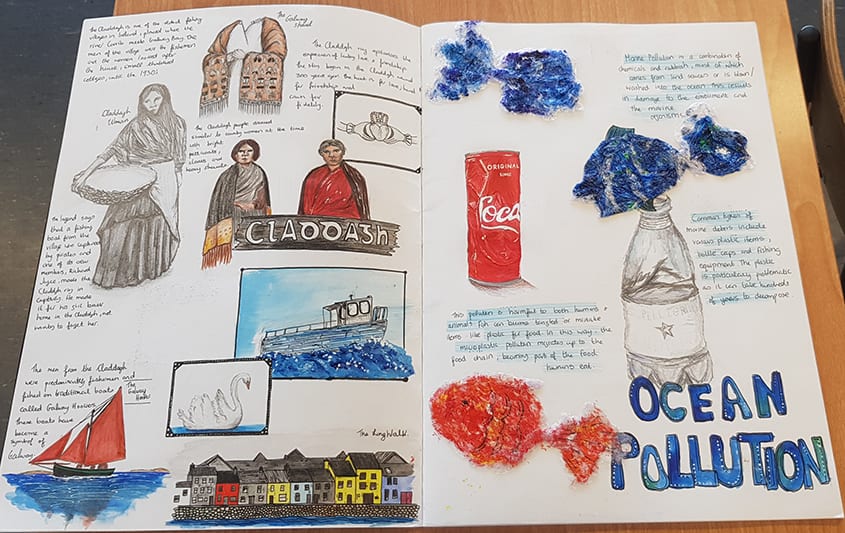 The Claddagh is one of the oldest fishing
villages in Ireland, placed where the
river Corrib meets Galway Bay. The
men of the village were the fishermen
and the women
the house, thatched
cottages, until the 1930s
The
Galway
Shawl
The Claddagh ring expresses the
expression of
the story began in the Claddagh around
300 years ago. The hands is for love, hand
for friendship and
crown for
fidelity
Claddagh
Woman
The Claddagh people dressed
similar to country women at the time
with bright
petticoats,
and
heavy shawls
CLADDAGH
The legend says
that a fishing
boat from the
village was captured
by pirates and
one of its crew
members, Richard
Joyce, made the
Claddagh ring in
captivity. He made
it for his
home in the Claddagh, not
wanting to forget her.
The men from the Claddagh
were predominantly fishermen and
fished on traditional boats
called Galway Hookers.
These boats have
become a
symbol of
Galway
The
Galway
Hooker
The Long Walk.
Marine Pollution is a combination of
chemicals and rubbish, most of which
comes from land sources or is blown/
washed into the ocean. This results
in damage to the enviroment and
the marine
organisms
ORIGINAL
Coca
Common types of
marine debris include
various plastic items,
bottle caps and fishing
equipment. The plastic
is particularly problematic
as it can take hundreds
of years to decompose.
This pollution is harmful to both humans &
animals! Fish can become tangled or mistake
items like plastic for food. In this way, the
microplastic pollution up to the
food chain, becoming part of the food
humans eat.
OCEAN
POLLUTION